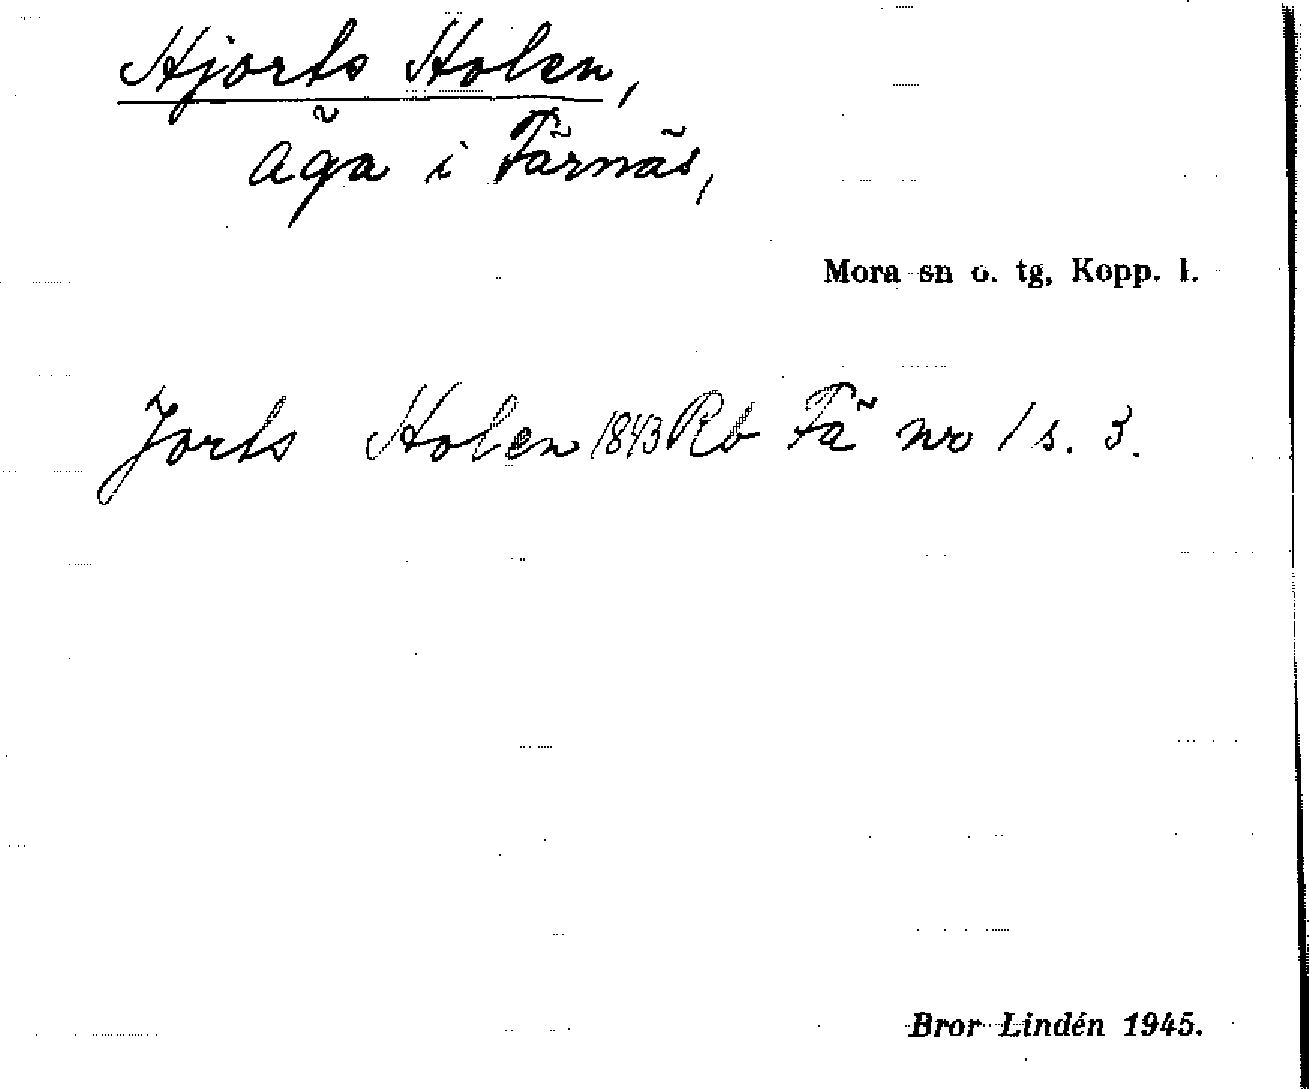 Hjorts Holen,
äga i Färnäs,
Mora sn o. tg, Kopp. l.
Jorts Holen 1843 Rb Fä nr 1 s. 3.
Bror Lindén 1945.